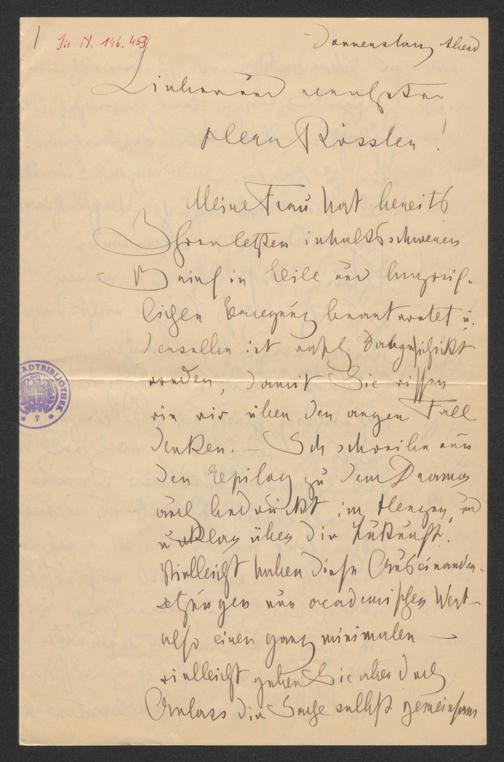 J. N. 146.453
Donnerstag Abend
Lieber und verehrter
Herr Rössler!
Meine Frau hat bereits
Ihren letzten inhaltsschweren
Brief in Eile und begreif-
licher Erregung beantwortet u.
derselbe ist rasch abgeschickt
worden, damit Sie wissen
wie wir über den argen Fall
denken. — Ich schreibe nun
den Epilog zu dem Drama
und bedrückt im Herzen und
unklar über die Zukunft.
Vielleicht haben diese Auseinander-
setzungen nur academischen Wert —
also einen ganz minimalen —
vielleicht geben Sie aber doch
Anlass die Sache selbst gemeinsam
STADTBIBLIOTHEK